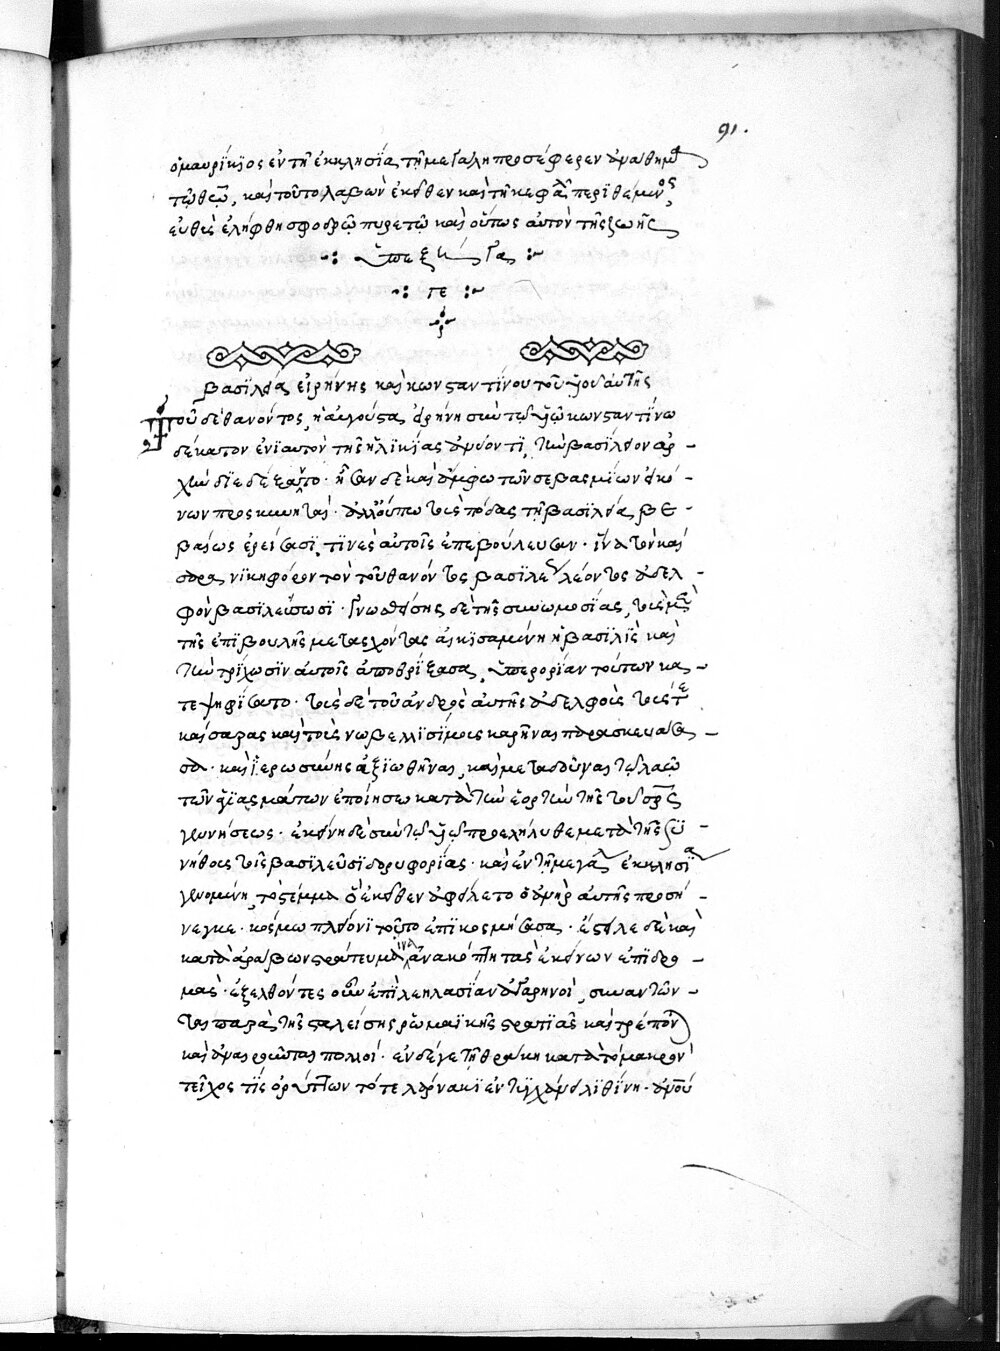 91.
ὁ μαυρίκιος ἐν τῆ ἐκκλησία τῆ μεγάλη προσέφερεν ἀνάθημα
τῶ θεῶ, καὶ τοῦτο λαβὼν ἐκεῖθεν καὶ τῆ κεφαλῆ περιθέμενος,
εὐθὺς ἐλήφθη σφοδρῶ πυρετῶ καὶ οὕτως αὐτὸν τῆς ζωῆς
ὑπεξήγαγε
βασιλεία εἰρήνης καὶ κωνσταντίνου τοῦ υἱοῦ αὐτῆς
τοῦ δὲ θανόντος, ἡ αὐγούστα εἰρήνη σὺν τῶ υἱῶ κωνσταντίνω
δέκατον ἐνιαυτὸν τῆς ἡλικίας ἀνύοντι, τὴν βασίλειον ἀρ-
χὴν διεδέξατο. ἦσαν δὲ καὶ ἄμφω τῶν σεβασμίων εἰκό-
νων προσκυνηταί. ἀλλ' οὔπω τοὺς πόδας τῆ βασιλεία βε-
βαίως ἐρείσασι, τινὲς αὐτοῖς ἐπεβούλευσαν. ἵνα τὸν καί-
σαρα νικηφόρον τὸν τοῦ θανόντος βασιλέως λέοντος ἀδελ-
φὸν βασιλεύσωσι. γνωσθείσης δὲ τῆς συνωμοσίας, τοὺς μὲν
τῆς ἐπιβουλῆς μετασχόντας αἰκισαμένη ἡ βασιλὶς καὶ
τὴν τρίχωσιν αὐτοῖς ἀποθρίξασα, ὑπερορίαν τούτων κα-
τεψηφίσατο. τοὺς δὲ τοῦ ἀνδρὸς αὐτῆς ἀδελφοὺς τούς τε
καίσαρας καὶ τοὺς νωβελλισίμους καρῆναι παρασκευάσα-
σα. καὶ ἱερωσύνης ἀξιωθῆναι, καὶ μεταδοῦναι τῶ λαῶ
τῶν ἁγιασμάτων ἐποίησε κατὰ τὴν ἑορτὴν τῆς τοῦ σωτῆρος
γεννήσεως. ἐκείνη δὲ σὺν τῶ υἱῶ προεληλύθει μετὰ τῆς συ-
νήθους τοῖς βασιλεῦσι δορυφορίας. καὶ ἐν τῆ μεγάλη ἐκκλησία
γενομένη, τὸ στέμμα ὃ ἐκεῖθεν ἀφείλετο ὁ ἀνὴρ αὐτῆς προσή-
νεγκε. κόσμω πλείονι τοῦτο ἐπικοσμήσασα. ἔστειλε δὲ καὶ
κατὰ ἀράβων στράτευμα ἵνα ἀνακόπτη τὰς ἐκείνων ἐπιδρο-
μάς. ἐξελθόντες οὖν ἐπὶ λεηλασίαν ἀγαρηνοὶ, συναντῶν-
ται παρὰ τῆς σταλείσης ρωμαϊκῆς στρατιᾶς καὶ τρέπονται
καὶ ἀναιροῦνται πολλοί. ἐν δέ γε τῆ θράκη κατὰ τὸ μακρὸν
τεῖχος τίς ὀρύττων τότε λάρνακι ἐντυγχάνει λιθίνη. ἀφ' οὗ